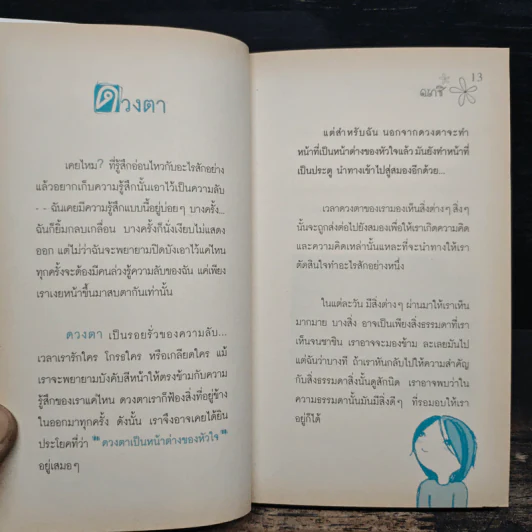 ดวงตา
เคยไหม? ที่รู้สึกอ่อนไหวกับอะไรสักอย่าง
แล้วอยากเก็บความรู้สึกนั้นเอาไว้เป็นความลับ
-- ฉันเคยมีความรู้สึกแบบนี้อยู่บ่อยๆ บางครั้ง...
ฉันก็ยิ้มกลบเกลื่อน บางครั้งก็นั่งเงียบไม่แสดง
ออก แต่ไม่ว่าฉันจะพยายามปิดบังเอาไว้แค่ไหน
ทุกครั้งจะต้องมีคนล่วงรู้ความลับของฉัน แค่เพียง
เราเงยหน้าขึ้นมาสบตากันเท่านั้น
ดวงตา เป็นรอยรั่วของความลับ...
เวลาเรารักใคร โกรธใคร หรือเกลียดใคร แม้
เราจะพยายามบังคับสีหน้าให้ตรงข้ามกับความ
รู้สึกของเราแค่ไหน ดวงตาเราก็ฟ้องสิ่งที่อยู่ข้าง
ในออกมาทุกครั้ง ดังนั้น เราจึงอาจเคยได้ยิน
ประโยคที่ว่า “ดวงตาเป็นหน้าต่างของหัวใจ”
อยู่เสมอๆ
13
แต่สำหรับฉัน นอกจากดวงตาจะทำ
หน้าที่เป็นหน้าต่างของหัวใจแล้ว มันยังทำหน้าที่
เป็นประตู นำทางเข้าไปสู่สมองอีกด้วย...
เวลาดวงตาของเรามองเห็นสิ่งต่างๆ สิ่งๆ
นั้นจะถูกส่งต่อไปยังสมองเพื่อให้เราเกิดความคิด
และความคิดเหล่านั้นแหละที่จะนำทางให้เรา
ตัดสินใจทำอะไรสักอย่างหนึ่ง
ในแต่ละวัน มีสิ่งต่างๆ ผ่านมาให้เราเห็น
มากมาย บางสิ่ง อาจเป็นเพียงสิ่งธรรมดาที่เรา
เห็นจนชาชิน เราอาจจะมองข้าม ละเลยมันไป
แต่ฉันว่าบางที ถ้าเราหันกลับไปให้ความสำคัญ
กับสิ่งธรรมดาสิ่งนั้นดูสักนิด เราอาจพบว่าใน
ความธรรมดานั้นมันมีสิ่งดีๆ ที่รอมอบให้เรา
อยู่ก็ได้